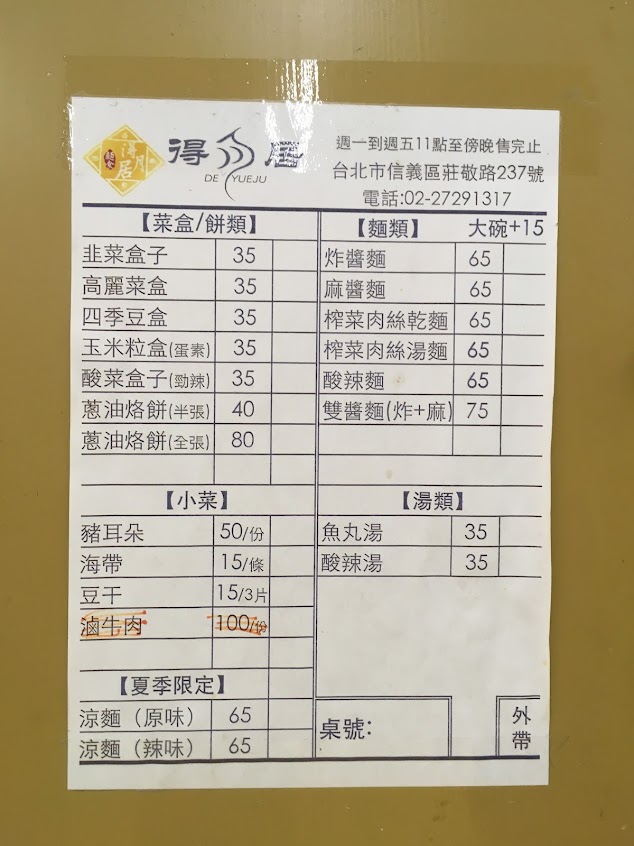 得月居
顧家
得月居
DE YUEJU
週一到週五11點至傍晚售完止
台北市信義區莊敬路237號
電話:02-27291317
【菜盒/餅類】
韭菜盒子 35
高麗菜盒 35
四季豆盒 35
玉米粒盒(蛋素) 35
酸菜盒子(勁辣) 35
蔥油烙餅(半張) 40
蔥油烙餅(全張) 80
【麵類】 大碗+15
炸醬麵 65
麻醬麵 65
榨菜肉絲乾麵 65
榨菜肉絲湯麵 65
酸辣麵 65
雙醬麵(炸+麻) 75
【小菜】
豬耳朵 50/份
海帶 15/條
豆干 15/3片
滷牛肉 100/份
【湯類】
魚丸湯 35
酸辣湯 35
【夏季限定】
涼麵（原味） 65
涼麵（辣味） 65
桌號:
外帶